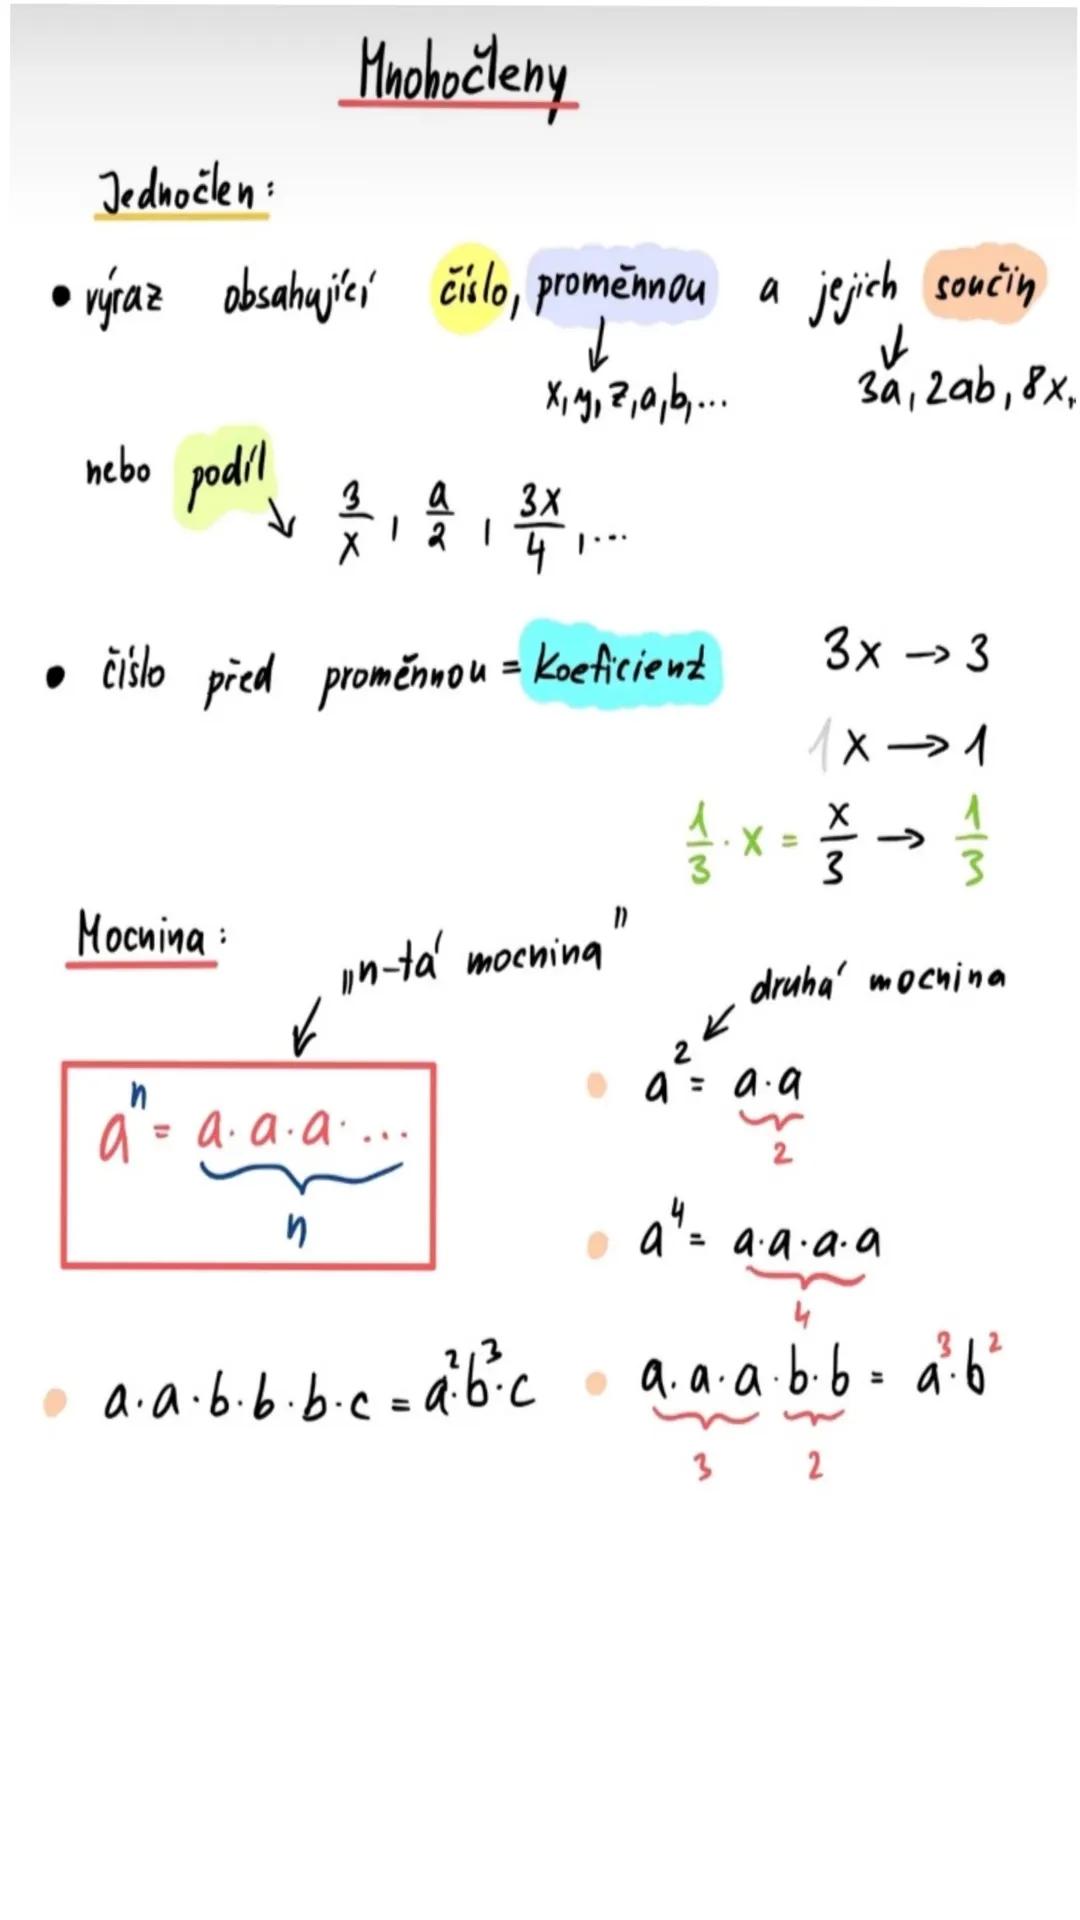 Mnohočleny
Jednočlen:
• výraz obsahující číslo, proměnnou a jejich součin
x, y, z, a, b, ...
3a, 2ab, 8x,
nebo podíl
3/x, a/2, 3x/4, ...
• číslo před proměnnou = koeficient
3x → 3
1x → 1
1/3 · x = x/3 → 1/3
Mocnina:
„n-tá mocnina"
aⁿ = a·a·a·...
n
druhá mocnina
a² = a·a
2
a⁴ = a·a·a·a
4
a·a·b·b·b·c = a²·b³·c
a·a·a·b·b = a³·b²
3 2